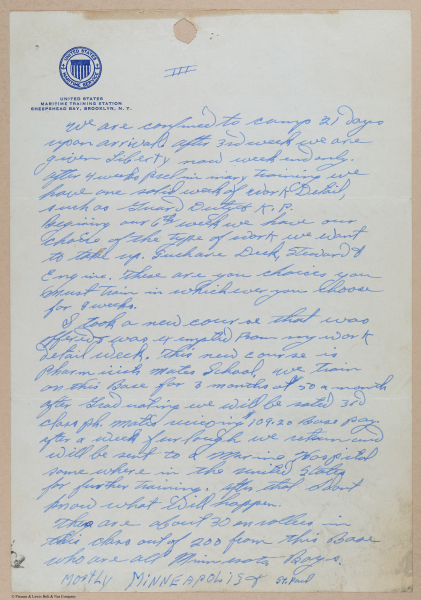 UNITED STATES
MARITIME SERVICE
UNITED STATES
MARITIME TRAINING STATION
SHEEPSHEAD BAY, BROOKLYN, N. Y.
III
We are confined to camp 21 days
upon arrival. After 3rd week we are
given Liberty now week end only.
After 4 weeks training we
have one solid week of Work Detail,
such as Guard Duty & K. P.
Begining our 6th week we have our
choice of the type of work we want
to take up. Such are Deck, Steward &
Engine. These are you choices you
must train in which ever you choose
for 8 weeks.
I took a new course that was
offered & was exempted from my work
detail week. This new course is
Pharmicists mates School. We train
on this Base for 3 months at 50 a month
after Graduating we will be rated 3rd
class Ph. Mates 109.20 Base pay.
after a week furlough we return and
will be sent to a Marine Hospital
some where in the United States
for further training. After that I dont
know what will happen.
There are about 30 enrollees in
this class out of 200 from this Base
who are all Minnesota Boys.
MOSTLY MINNEAPOLIS & St. Paul